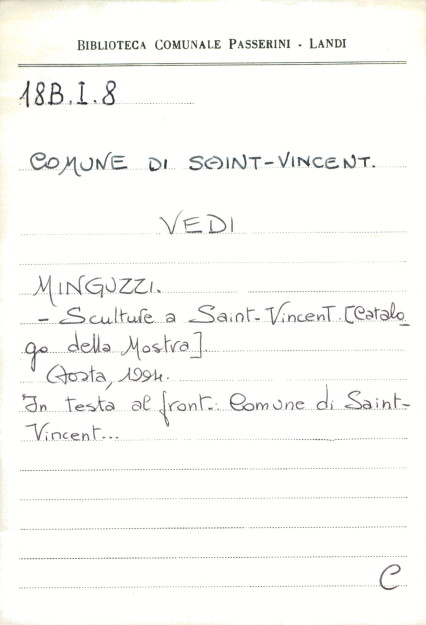 BIBLIOTECA COMUNALE PASSERINI - LANDI
18B.I.8
COMUNE DI SAINT-VINCENT.
VEDI
MINGUZZI.
- Sculture a Saint-Vincent. [Catalo_
go della Mostra].
Aosta, 1994.
In testa al front.: Comune di Saint-
Vincent...
C